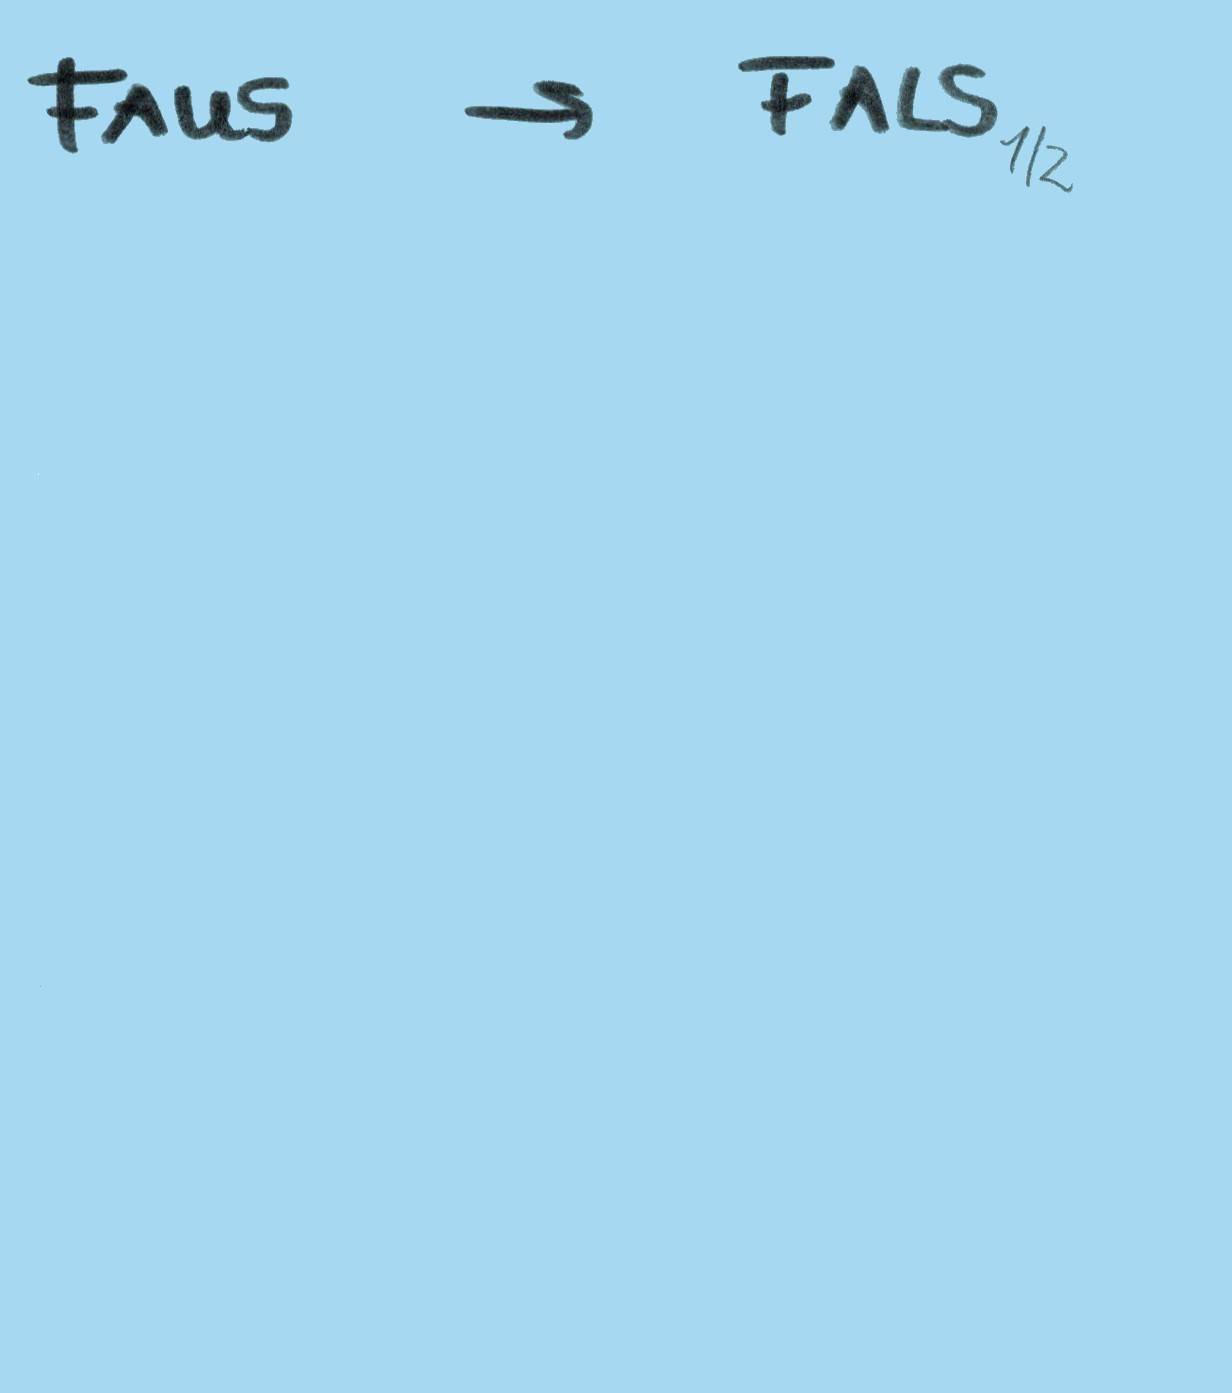 FAUS → FALS 1/2